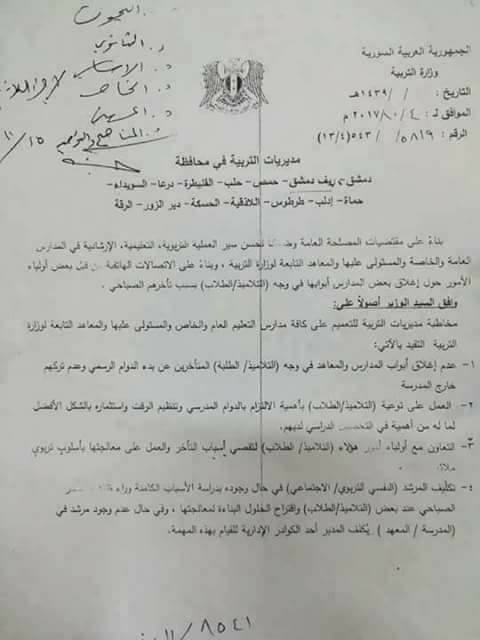 الجمهورية العربية السورية
وزارة التربية
التاريخ : / / ١٤٣٩هـ
الموافق لـ : ٤ / ١٠ / ٢٠١٧ م
الرقم : ٥٨١٩ / ٥٤٣ (١٣/٤)
البحوث
د. الثانوي
د. الأساسي
د. الخاص
مديريات التربية في محافظة
دمشق – ريف دمشق – حمص – حلب – القنيطرة – درعا – السويداء –
حماة – إدلب – طرطوس – اللاذقية – الحسكة – دير الزور – الرقة
بناءً على مقتضيات المصلحة العامة لحسن سير العملية التربوية، التعليمية، الإرشادية في المدارس
العامة والخاصة والمستولى عليها والمعاهد التابعة لوزارة التربية ، وبناءً على الاتصالات الهاتفية من قبل بعض أولياء
الأمور حول إغلاق بعض المدارس أبوابها في وجه (التلاميذ/الطلاب) بسبب تأخرهم الصباحي .
وافق السيد الوزير أصولاً على:
مخاطبة مديريات التربية للتعميم على كافة مدارس التعليم العام والخاص والمستولى عليها والمعاهد التابعة لوزارة
التربية التقيد بالآتي:
١- عدم إغلاق أبواب المدارس والمعاهد في وجه (التلاميذ/ الطلبة) المتأخرين عن بدء الدوام الرسمي وعدم تركهم
خارج المدرسة
٢- العمل على توعية (التلاميذ/الطلاب) بأهمية الالتزام بالدوام المدرسي وتنظيم الوقت واستثماره بالشكل الأفضل
لما له من أهمية في التحصيل الدراسي لديهم.
٣- التعاون مع أولياء أمور هؤلاء (التلاميذ/ الطلاب) لتقصي أسباب التأخر والعمل على معالجتها بأسلوب تربوي
٤- تكليف المرشد (النفسي التربوي/ الاجتماعي) في حال وجوده بدراسة الأسباب الكامنة وراء
الصباحي عند بعض (التلاميذ/الطلاب) واقتراح الحلول البناءة لمعالجتها ، وفي حال عدم وجود مرشد في
(المدرسة / المعهد ) يُكلف المدير أحد الكوادر الإدارية للقيام بهذه المهمة.
٨٥٤١